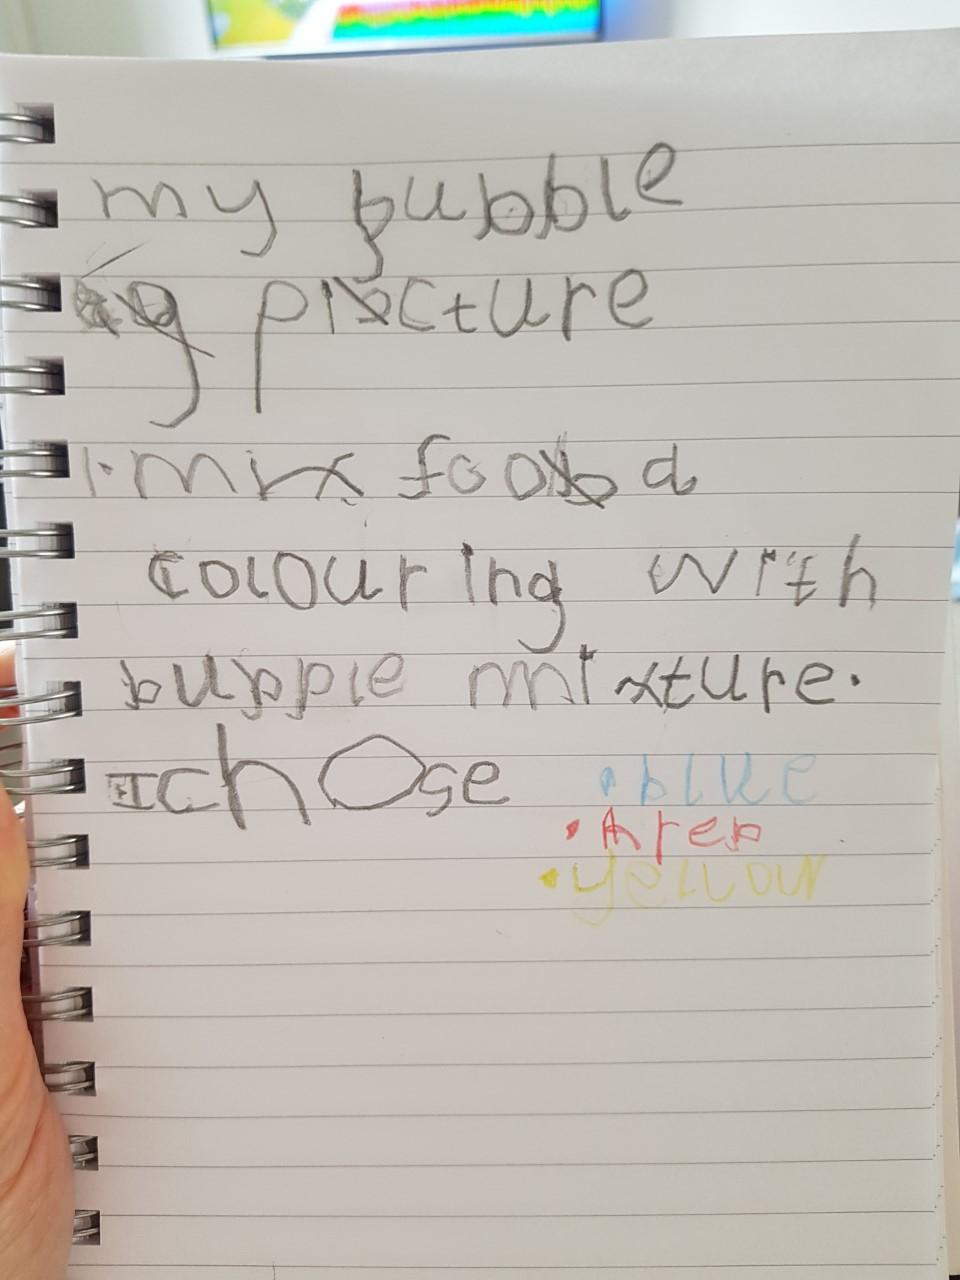 my bubble
picture
1. mix food
colouring with
bubble mixture.
I chose
• blue
• red
• yellow